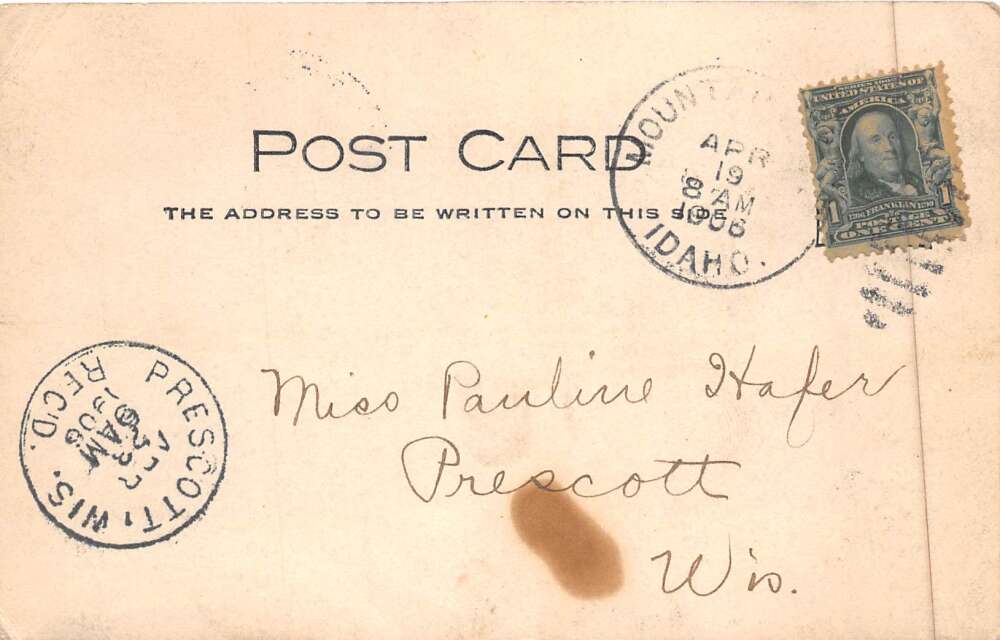 POST CARD
THE ADDRESS TO BE WRITTEN ON THIS SIDE
APR
19
8 AM
1906
IDAHO.
SERIES 1902
UNITED STATES OF
AMERICA
1 FRANKLIN 1
POSTAGE
ONE CENT
Miss Pauline Hafer
Prescott
Wis.
PRESCOTT, WIS.
REC'D.
AM
1906